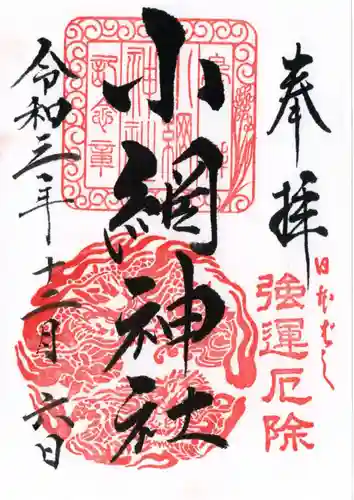 奉拝
日本ばし
強運厄除
小網神社
令和三年十二月六日